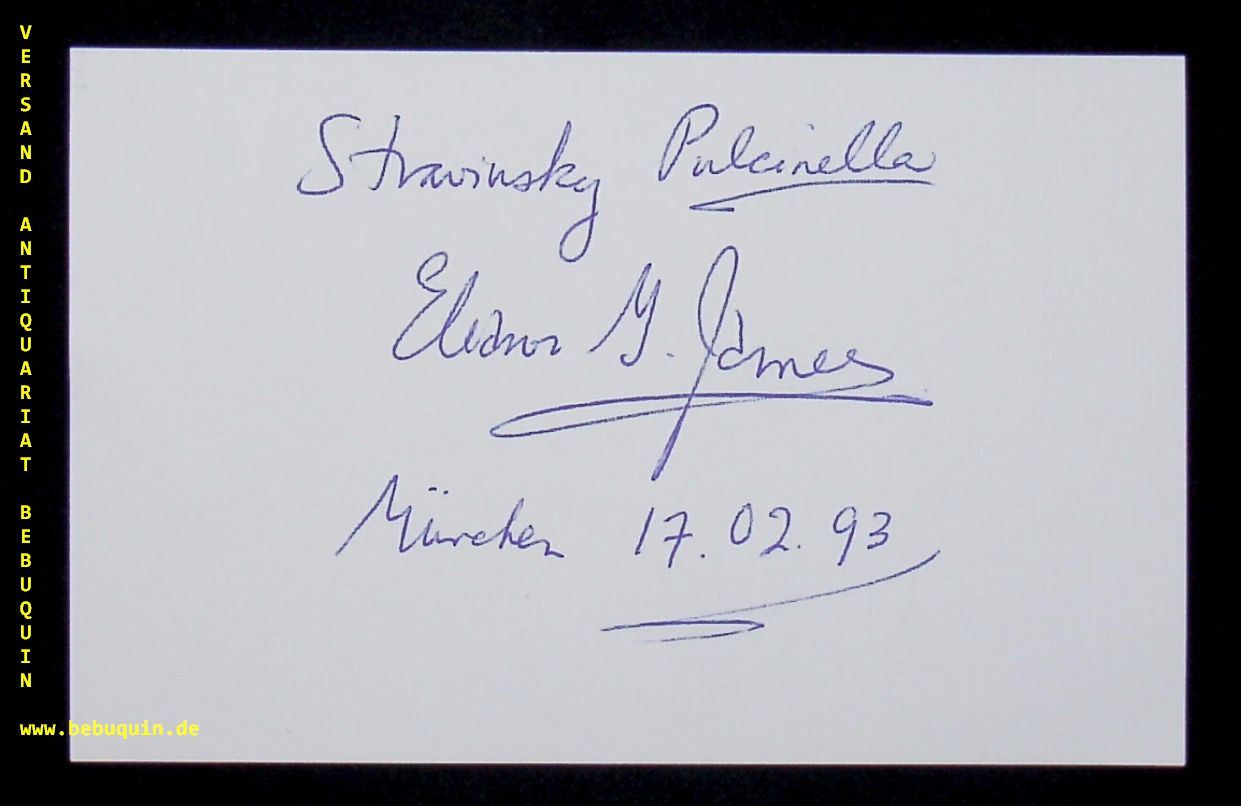 VERSAND ANTIQUARIAT BEBUQUIN
www.bebuquin.de
Stravinsky Pulcinella
Eleanor G. James
München 17.02.93